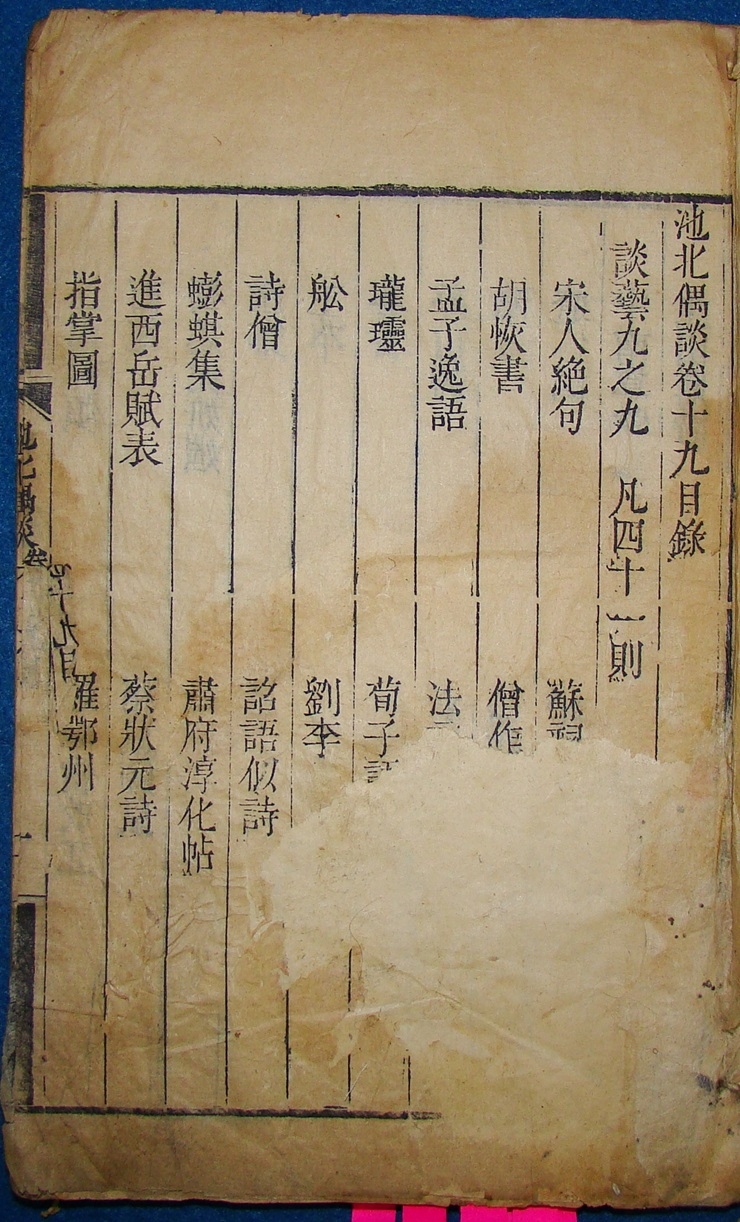 池北偶談卷十九目錄
談藝九之九 凡四十一則
宋人絕句 蘇
胡恢書 僧作
孟子逸語 法
瓏瓛 荀子語
舩 劉李
詩僧 詔語似詩
蟛蜞集 肅府淳化帖
進西岳賦表 蔡狀元詩
指掌圖 羅鄂州
池北偶談 卷十九目